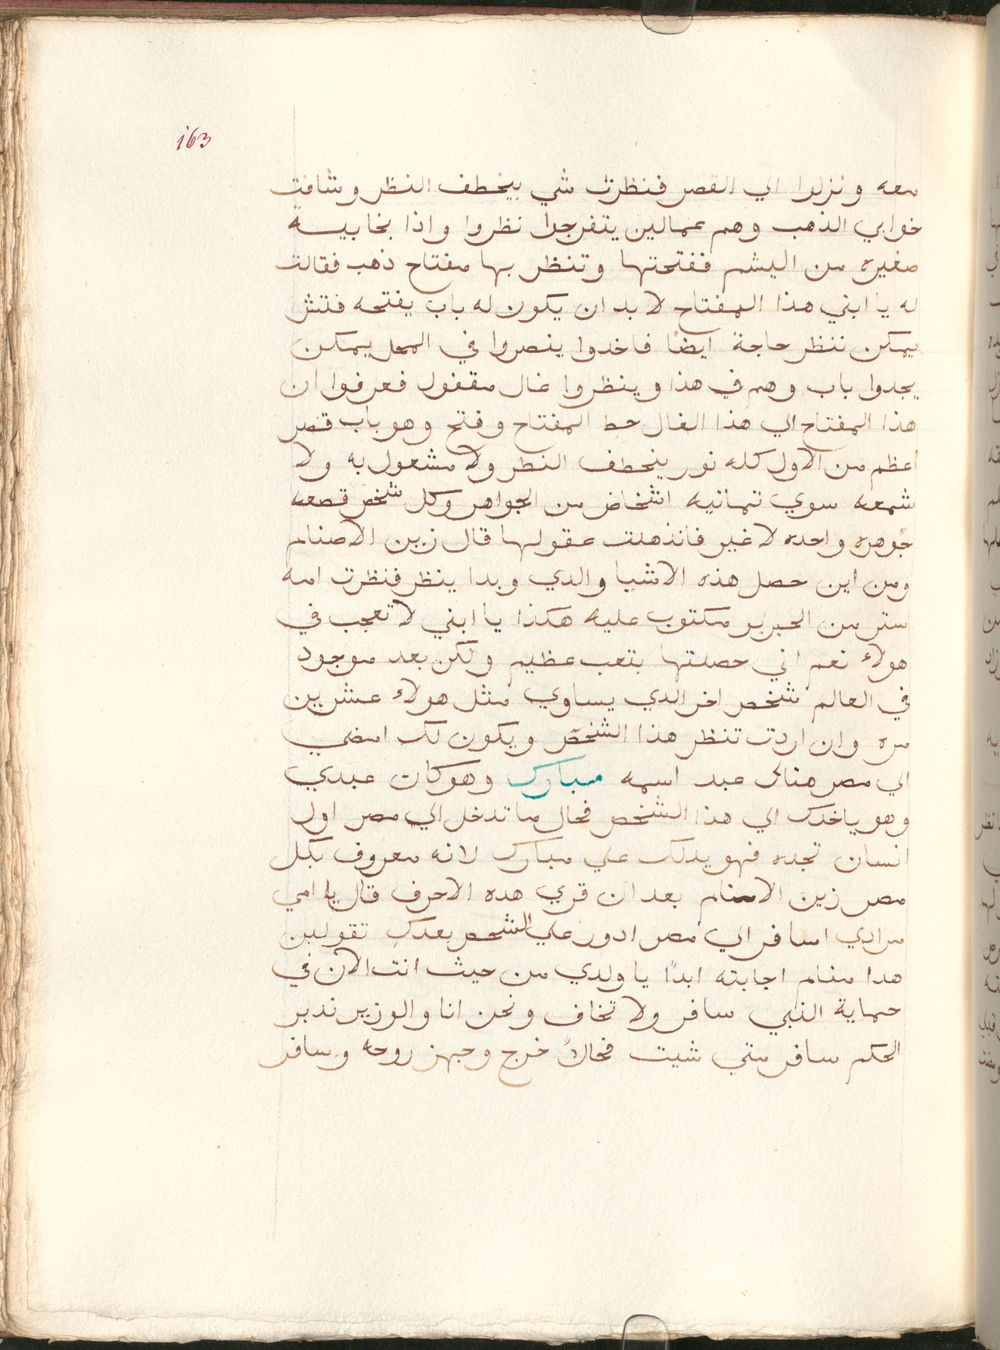 163
معه ونزلوا الي القصر فنظرت شي بيخطف النظر وشافت
خوابي الذهب وهم عمالين يتفرجوا نظروا واذا بخابيه
صغيره من اليشم ففتحتها وتنظر بها مفتاح ذهب فقالت
له يا ابني هذا المفتاح لا بد ان يكون له باب يفتحه فتش
يمكن ننظر حاجة ايضًا فاخدوا ينصروا في المحل يمكن
يجدوا باب وهم في هذا وينظروا غال مقفول فعرفوا ان
هذا المفتاح الي هذا الغال حط المفتاح وفتح وهو باب قصر
اعظم من الاول كله نور يخطف النظر ولا مشعول به ولا
شمعه سوي تمانيه اشخاض من الجواهر وكل شخص قصعه
جوهره واحده لا غير فانذهلت عقولها قال زين الاصنام
ومن اين حصل هذه الاشيا والدي وبدا ينظر فنظرت امه
ستر من الحرير مكتوب عليه هكذا يا ابني لا تعجب في
هولاء نعم اني حصلتها بتعب عظيم ولكن بعد موجود
في العالم شخص اخر الدي يساوي مثل هولاء عشرين
مره وان اردت تنظر هذا الشخص ويكون لك امضي
الي مصر هناك عبد اسمه مبارك وهو كان عبدي
وهو ياخدك الي هذا الشخص فحال ما تدخل الي مصر اول
انسان تجده فهو يدلك علي مبارك لانه معروف بكل
مصر زين الاصنام بعد ان قري هده الاحرف قال يا امي
مرادي اسافر الي مصر ادور علي الشخص بعدك تقولين
هدا منام اجابته ابدًا يا ولدي من حيث انت الان في
حماية النبي سافر ولا تخاف ونحن انا والوزير ندبر
الحكم سافر متي شيت فحالاً خرج وجهز روحه وسافر